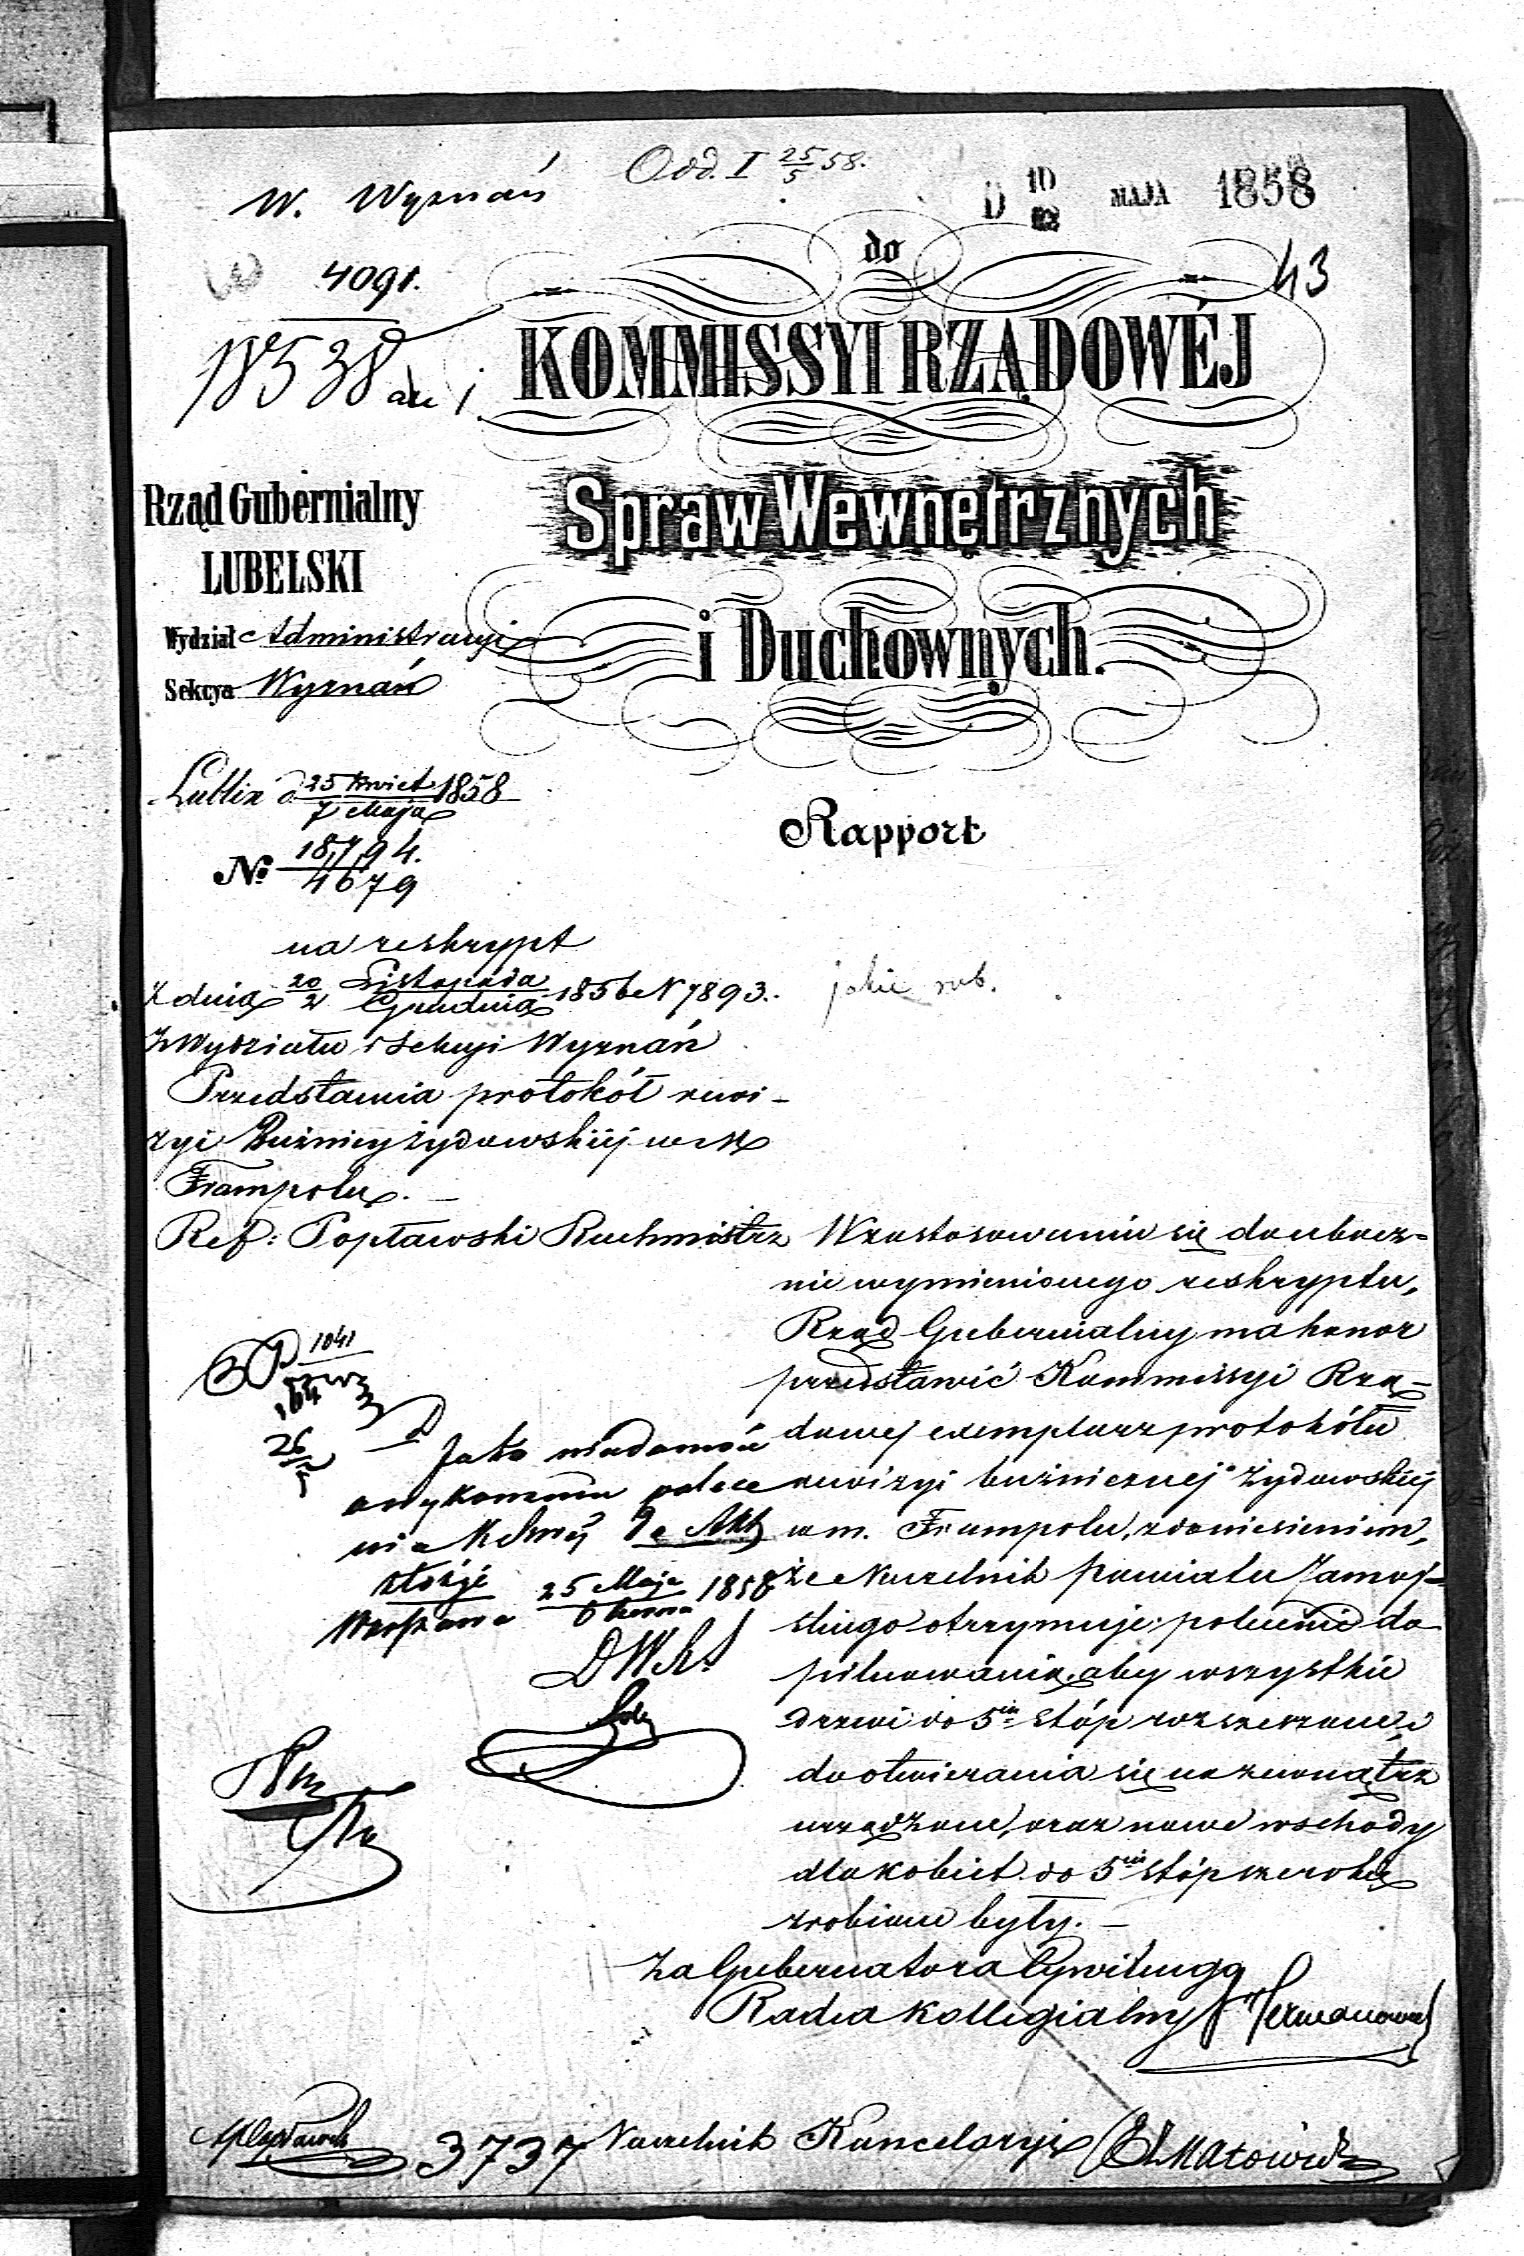 Odd. I 25/5 58.
W. Wyznań
D 10 MAJA 1858
4091.
43
18538
do
KOMMISSYI RZĄDOWÉJ
Spraw Wewnętrznych
i Duchownych.
Rząd Gubernialny
LUBELSKI
Wydział Administracyi
Sekcya Wyznań
Lublin d 25 Kwiet / 7 Maja 1858
№ 18,794. / 4679
Rapport
na reskrypt
z dnia 20 Listopada / 2 Grudnia 1856 N 7893.
z Wydziału i Sekcyi Wyznań
Przedstawia protokół rewi-
zyi Buźnicy żydowskiéj w M
Frampolu. —
Ref: Popławski Rachmistrz
W zastosowaniu się do ubocz=
nie wymienionego reskryptu,
Rząd Gubernialny ma honor
przedstawić Kommissyi Rzą=
dowej exemplarz protokółu
rewizyi buźnicznej żydowskiéj
w m. Frampolu, z doniesieniem,
że Naczelnik Powiatu Zamoj=
skiego otrzymuje polecenie do
pilnowania, aby wszystkie
drzwi do 5ciu stóp rozszerzone i
do otwierania się na zewnątrz
urządzone, oraz nowe wschody
dla kobiet do 5ciu stóp szerokie
zrobione były. —
1041
26
Jako wiadomość
o wykonaniu polece
nia
złożyć
25 Maja 1858
Za Gubernatora Cywilnego
Radca Kollegialny
3737 Naczelnik Kancelaryi